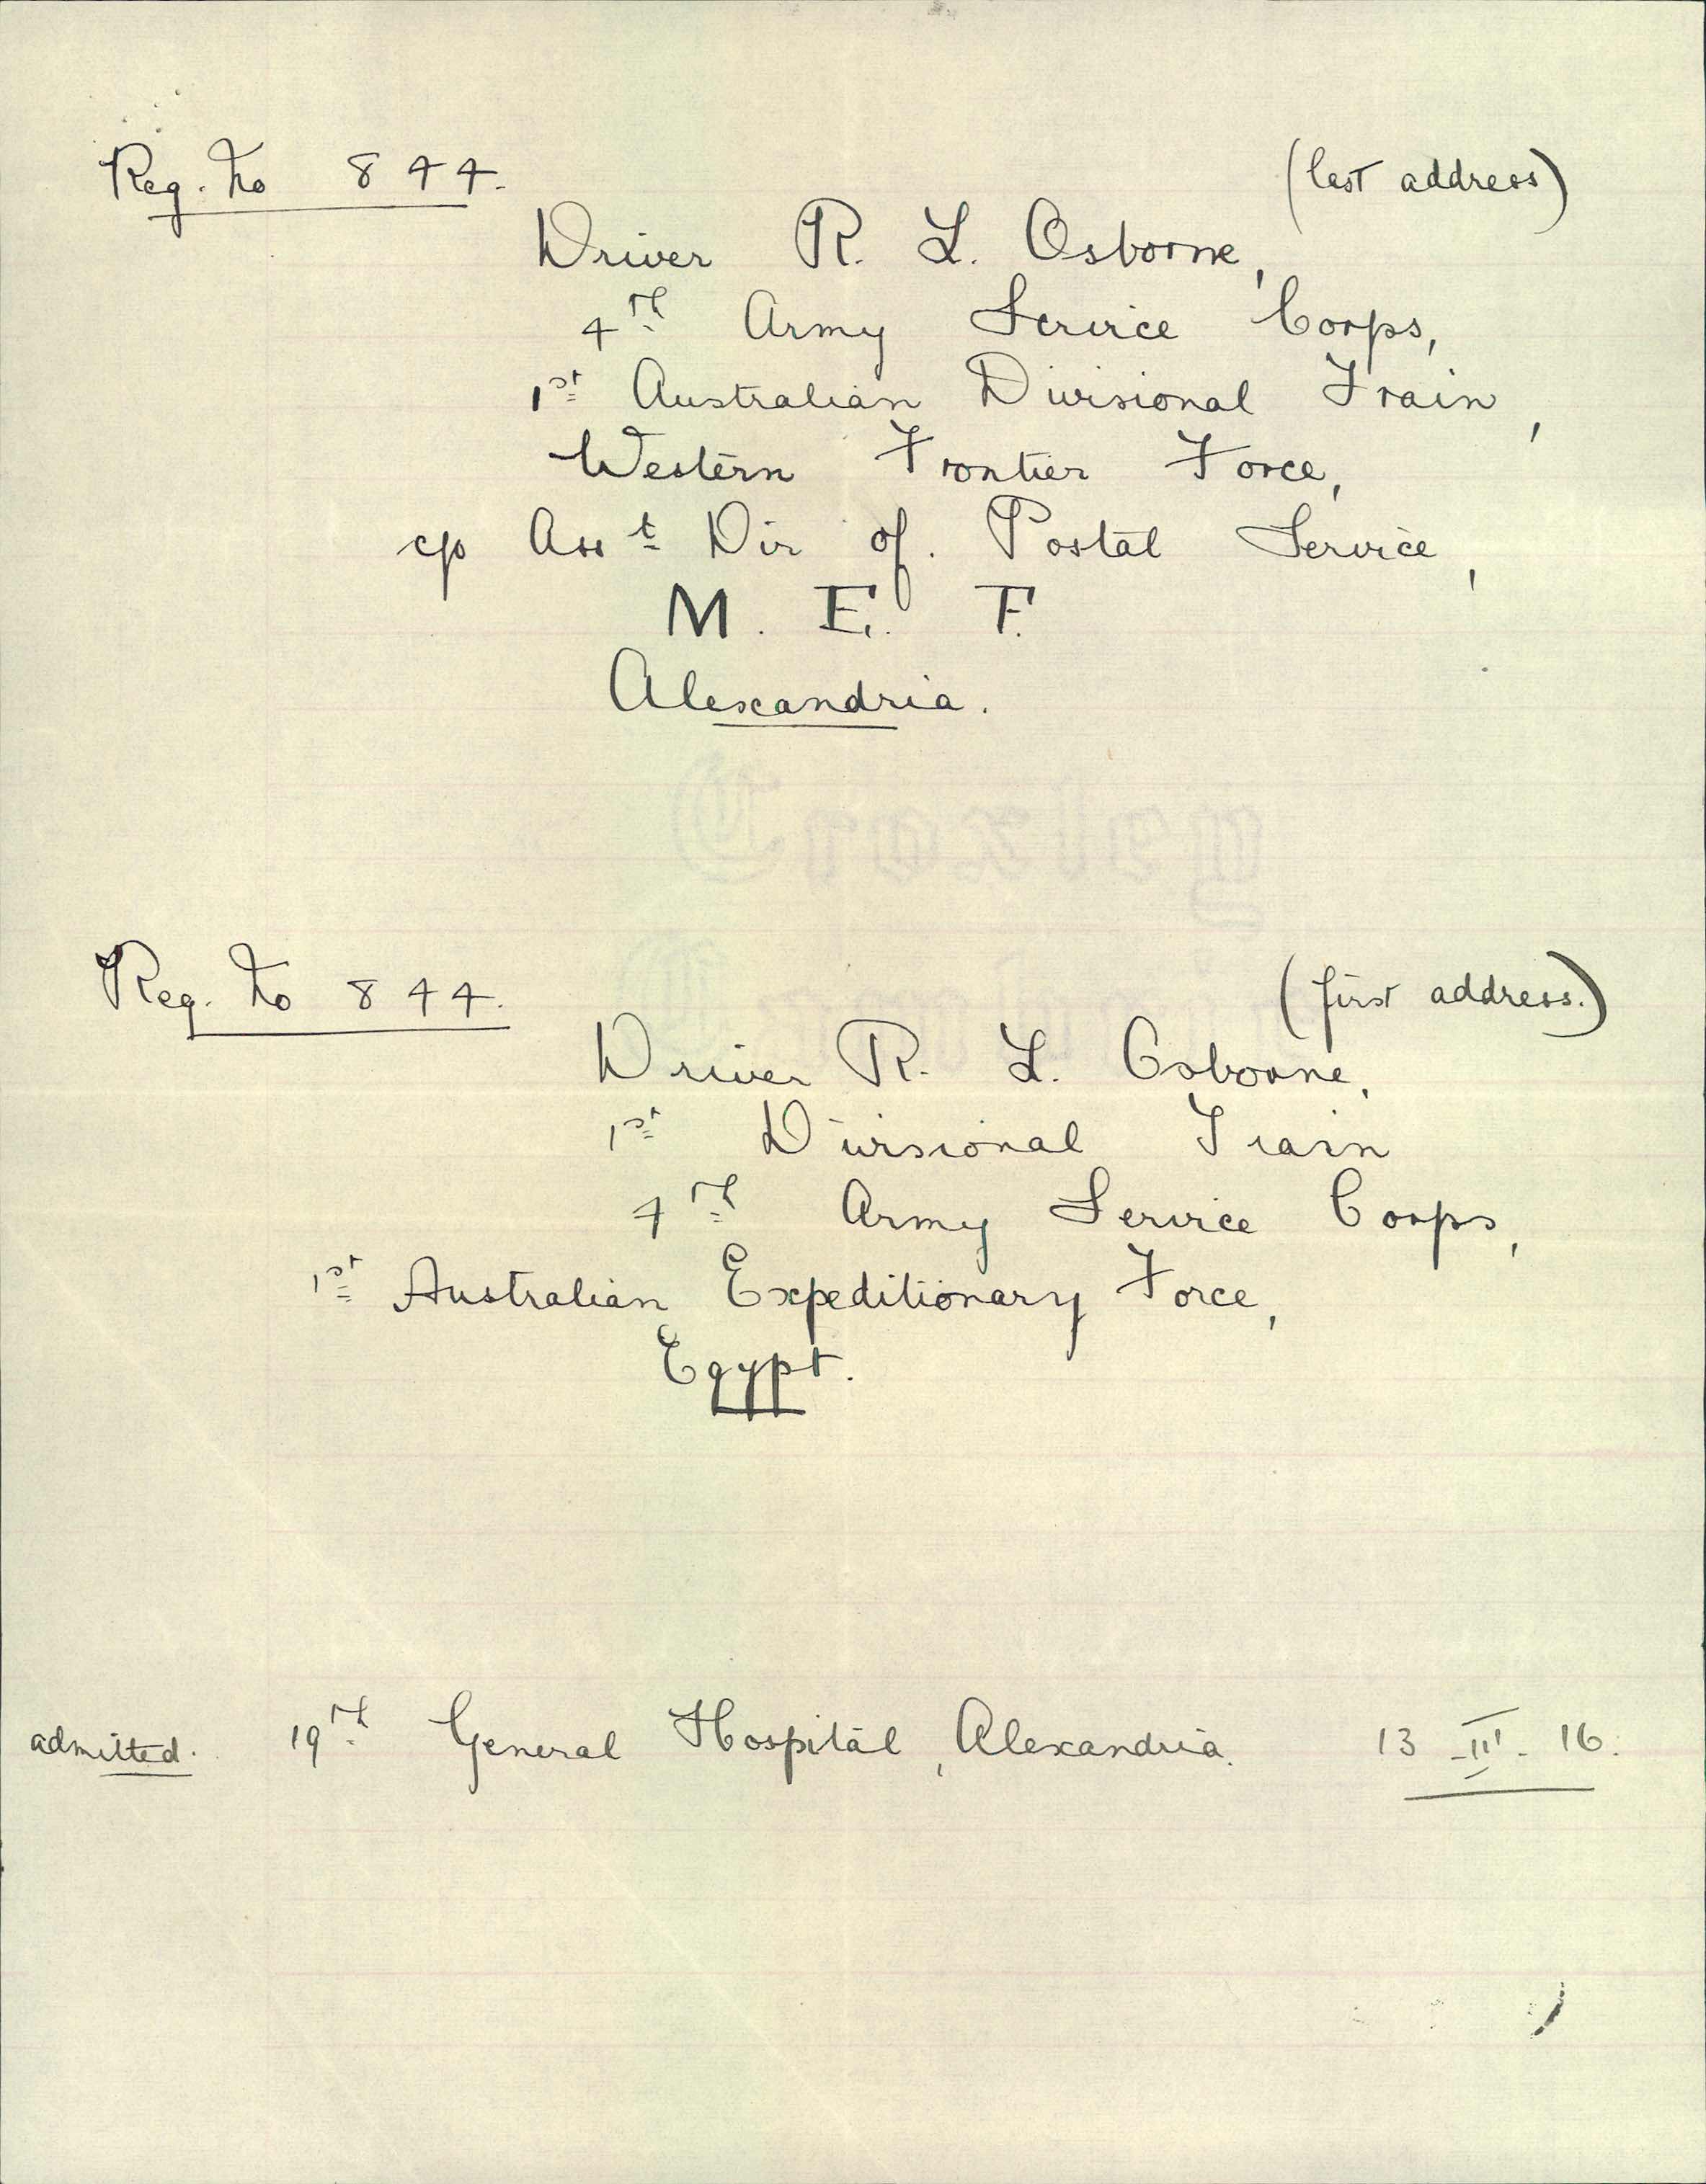 Reg. No 844.
(last address)
Driver R. L. Osborne,
4th Army Service Corps,
1st Australian Divisional Train,
Western Frontier Force,
c/o Asst Dir of. Postal Service,
M. E. F.
Alexandria.
Reg. No 844.
(first address.)
Driver R. L. Osborne,
1st Divisional Train
4th Army Service Corps,
1st Australian Expeditionary Force,
Egypt.
admitted. 19th General Hospital, Alexandria. 13-III-16.